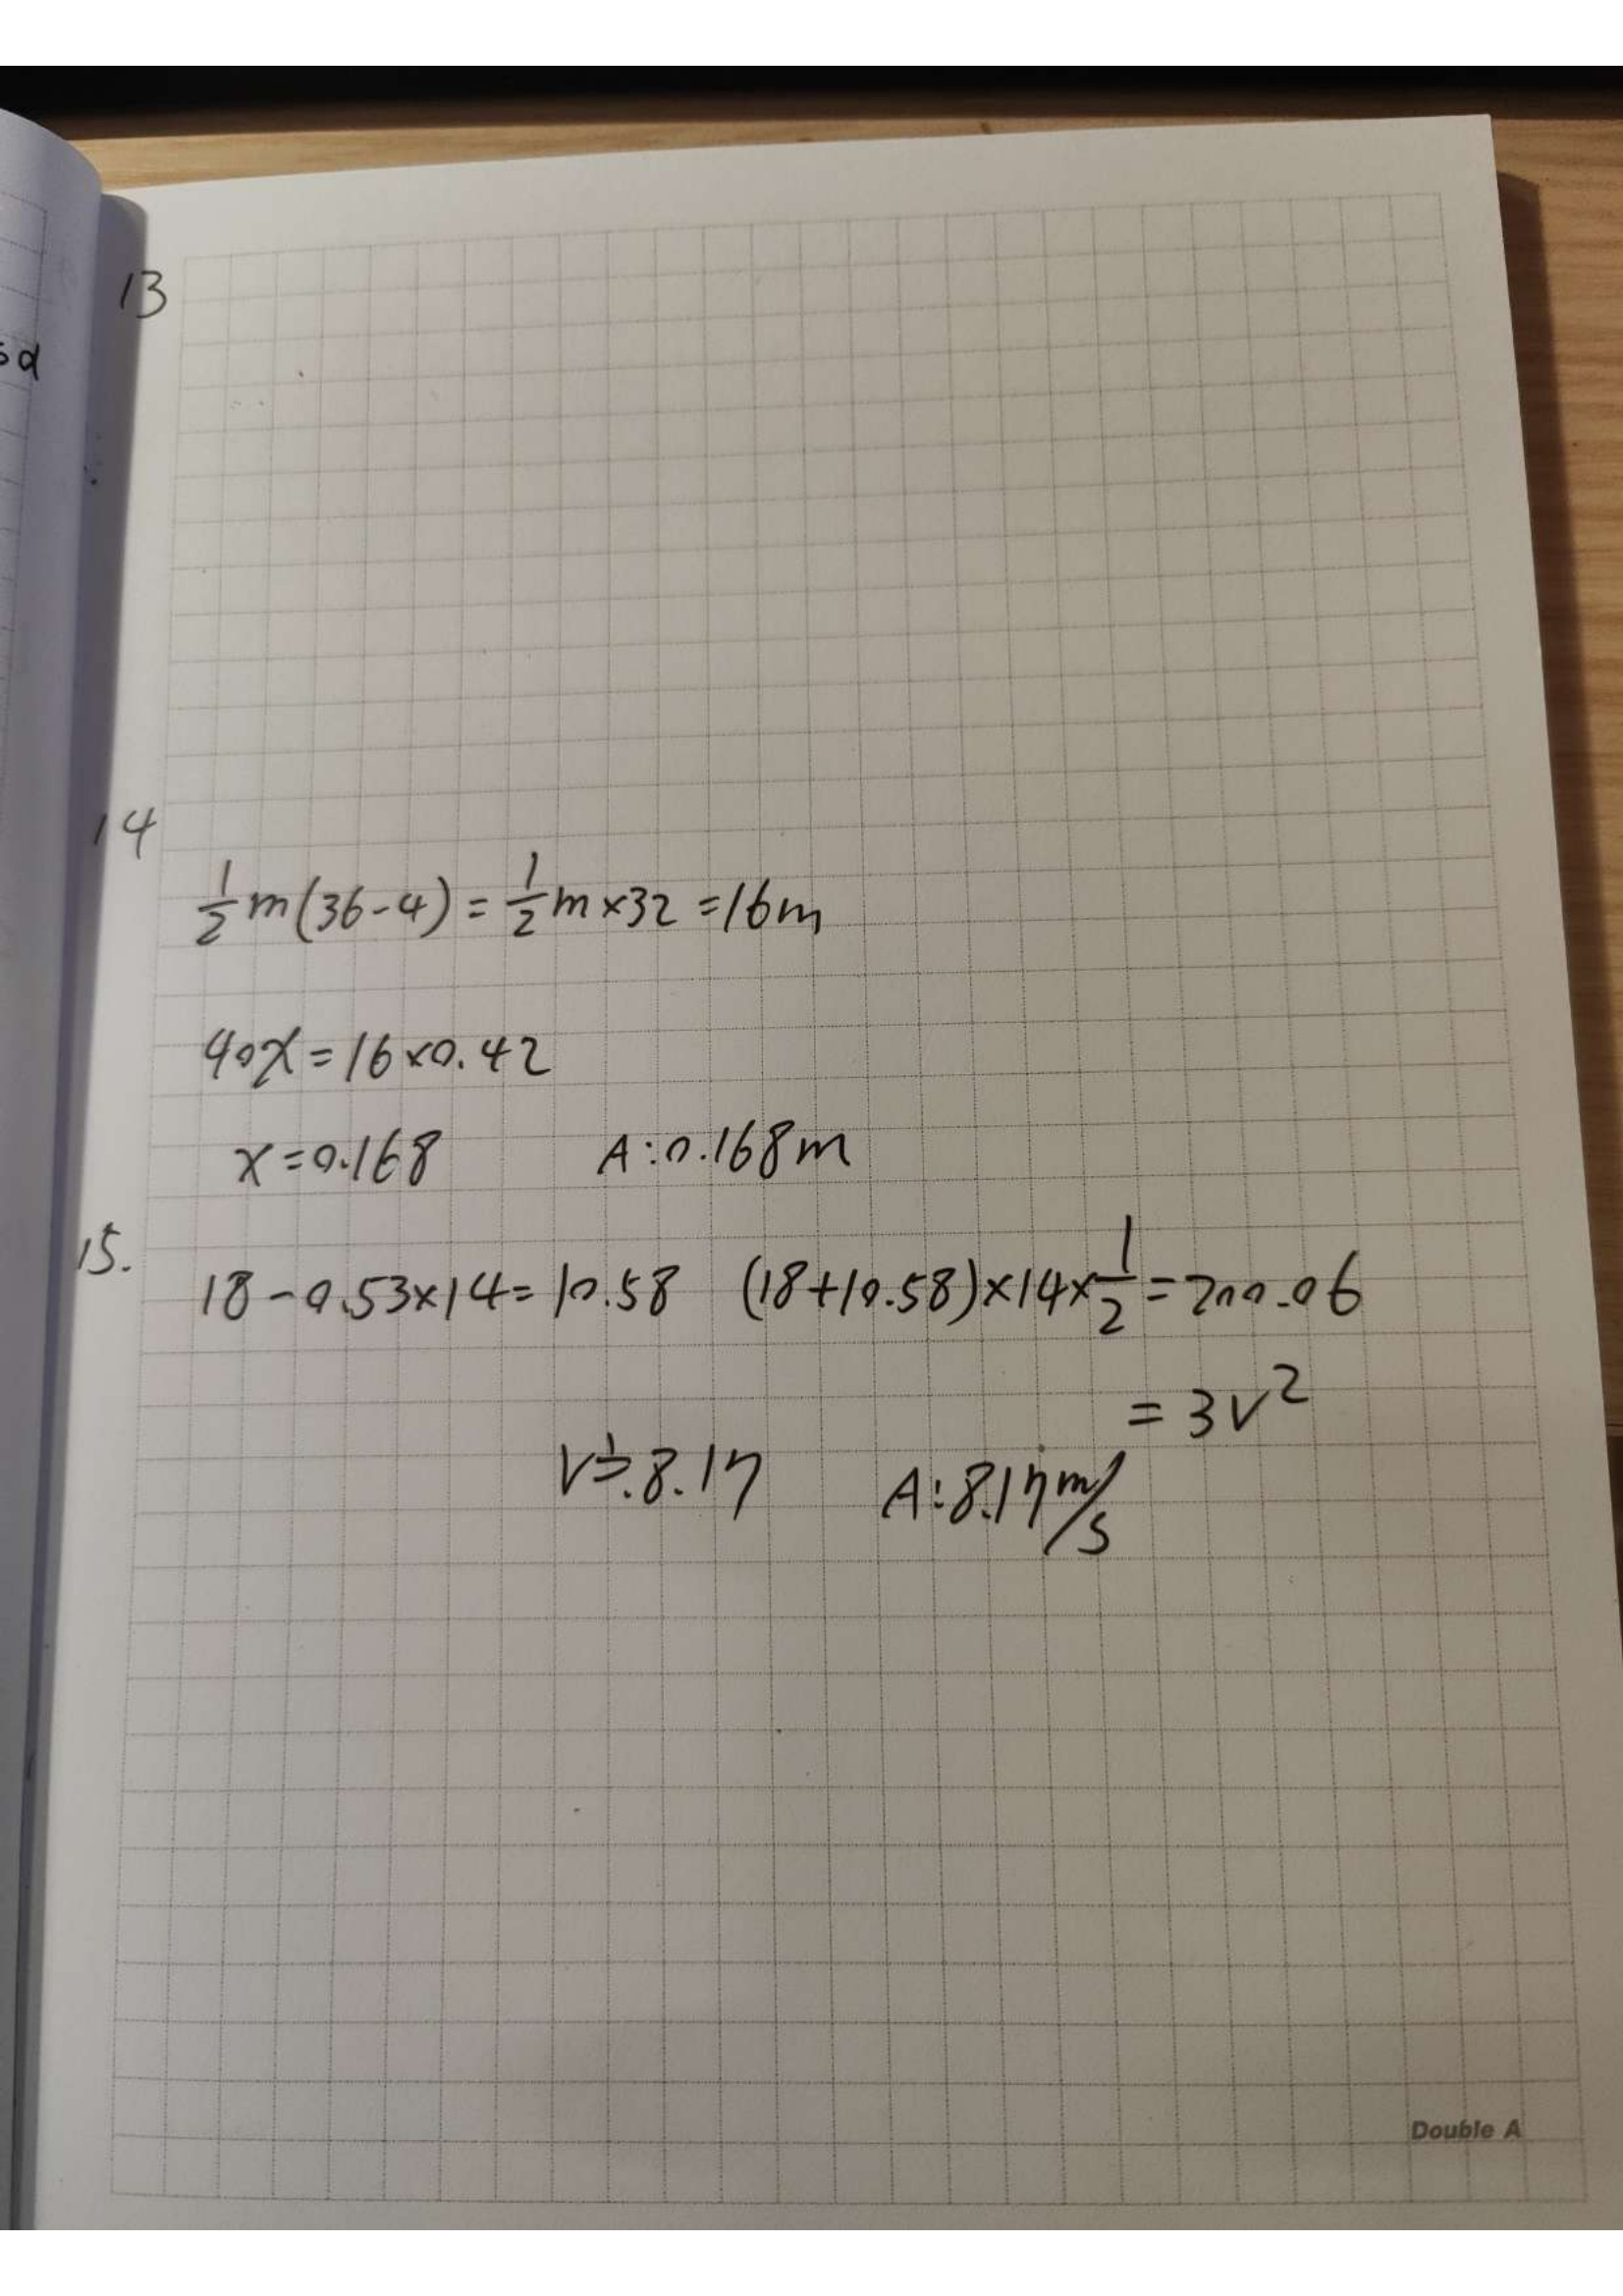 13
sd
14
1/2 m(36-4) = 1/2 m×32 = 16m
40x = 16×0.42
x = 0.168 A: 0.168m
15.
18-0.53×14 = 10.58 (18+10.58)×14×1/2 = 200.06
= 3v²
v≒8.17 A: 8.17 m/s
Double A